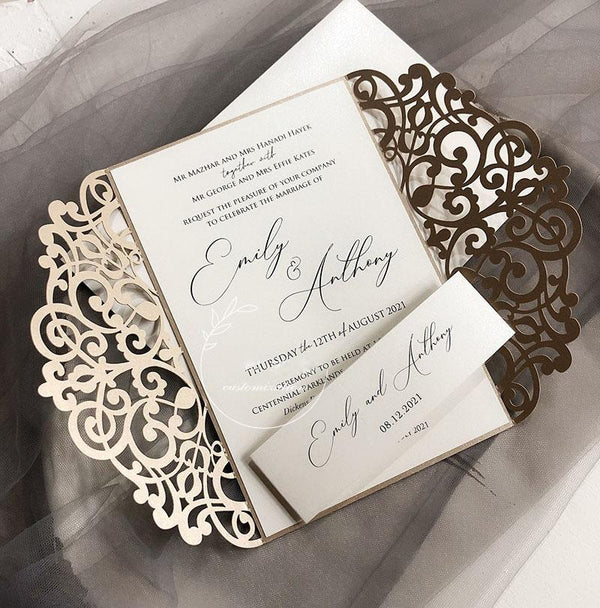 Mr Mazhar and Mrs Hanadi Hayek
together with
Mr George and Mrs Effie Kates
request the pleasure of your company
to celebrate the marriage of
Emily
&
Anthony
Thursday the 12th of August 2021
Ceremony to be held at
Centennial Parklands
Dickens
Emily and Anthony
08.12.2021
2021